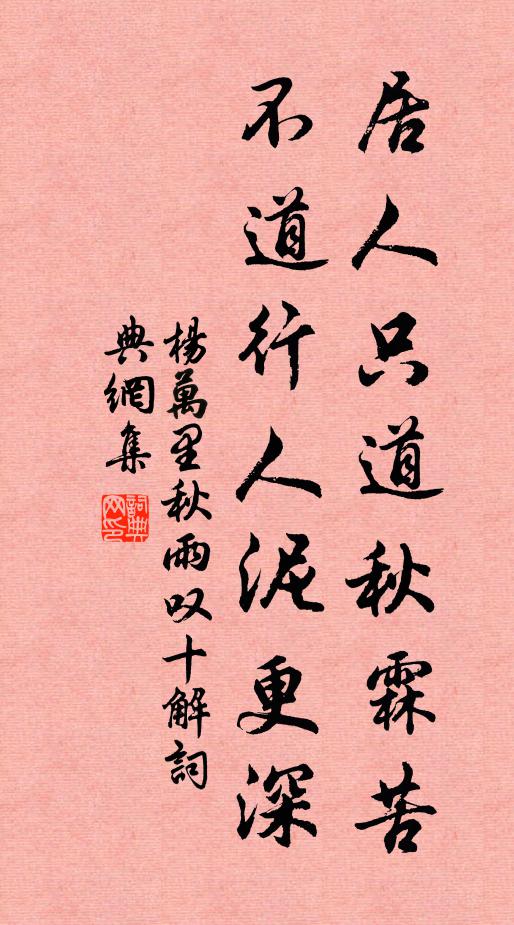 居人只道秋霖苦
不道行人泥更深
楊萬里秋雨叹十解詞
典網集
詞典
网印